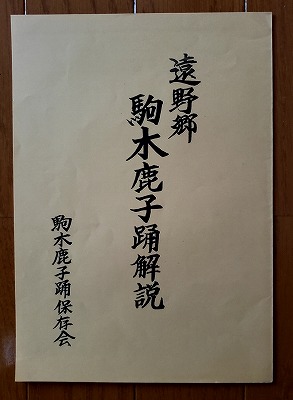 遠野郷
駒木鹿子踊解説
駒木鹿子踊保存会